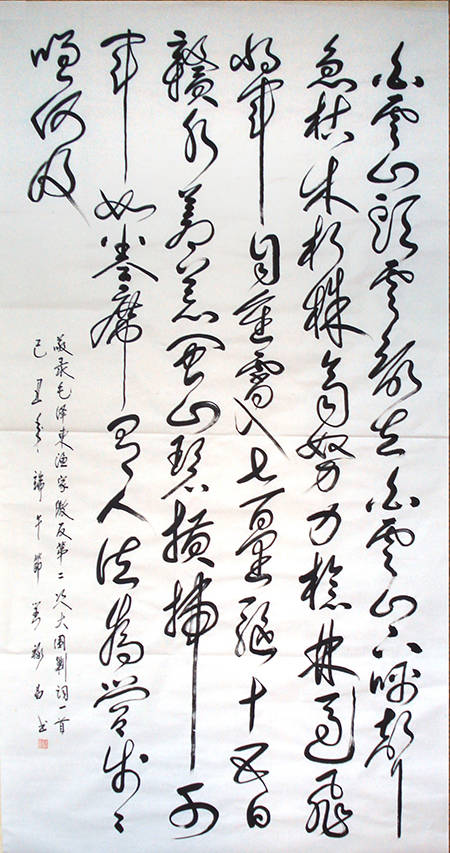 白雲山頭雲欲立白雲山下呼聲
急枯木朽株齊努力槍林逼飛
將軍自重霄入七百里驅十五日
贛水蒼茫閩山碧橫掃千
軍如卷席有人泣為營步々
嗟何及
敬录毛泽東渔家傲反第二次大围剿词一首
己丑年端午節 书